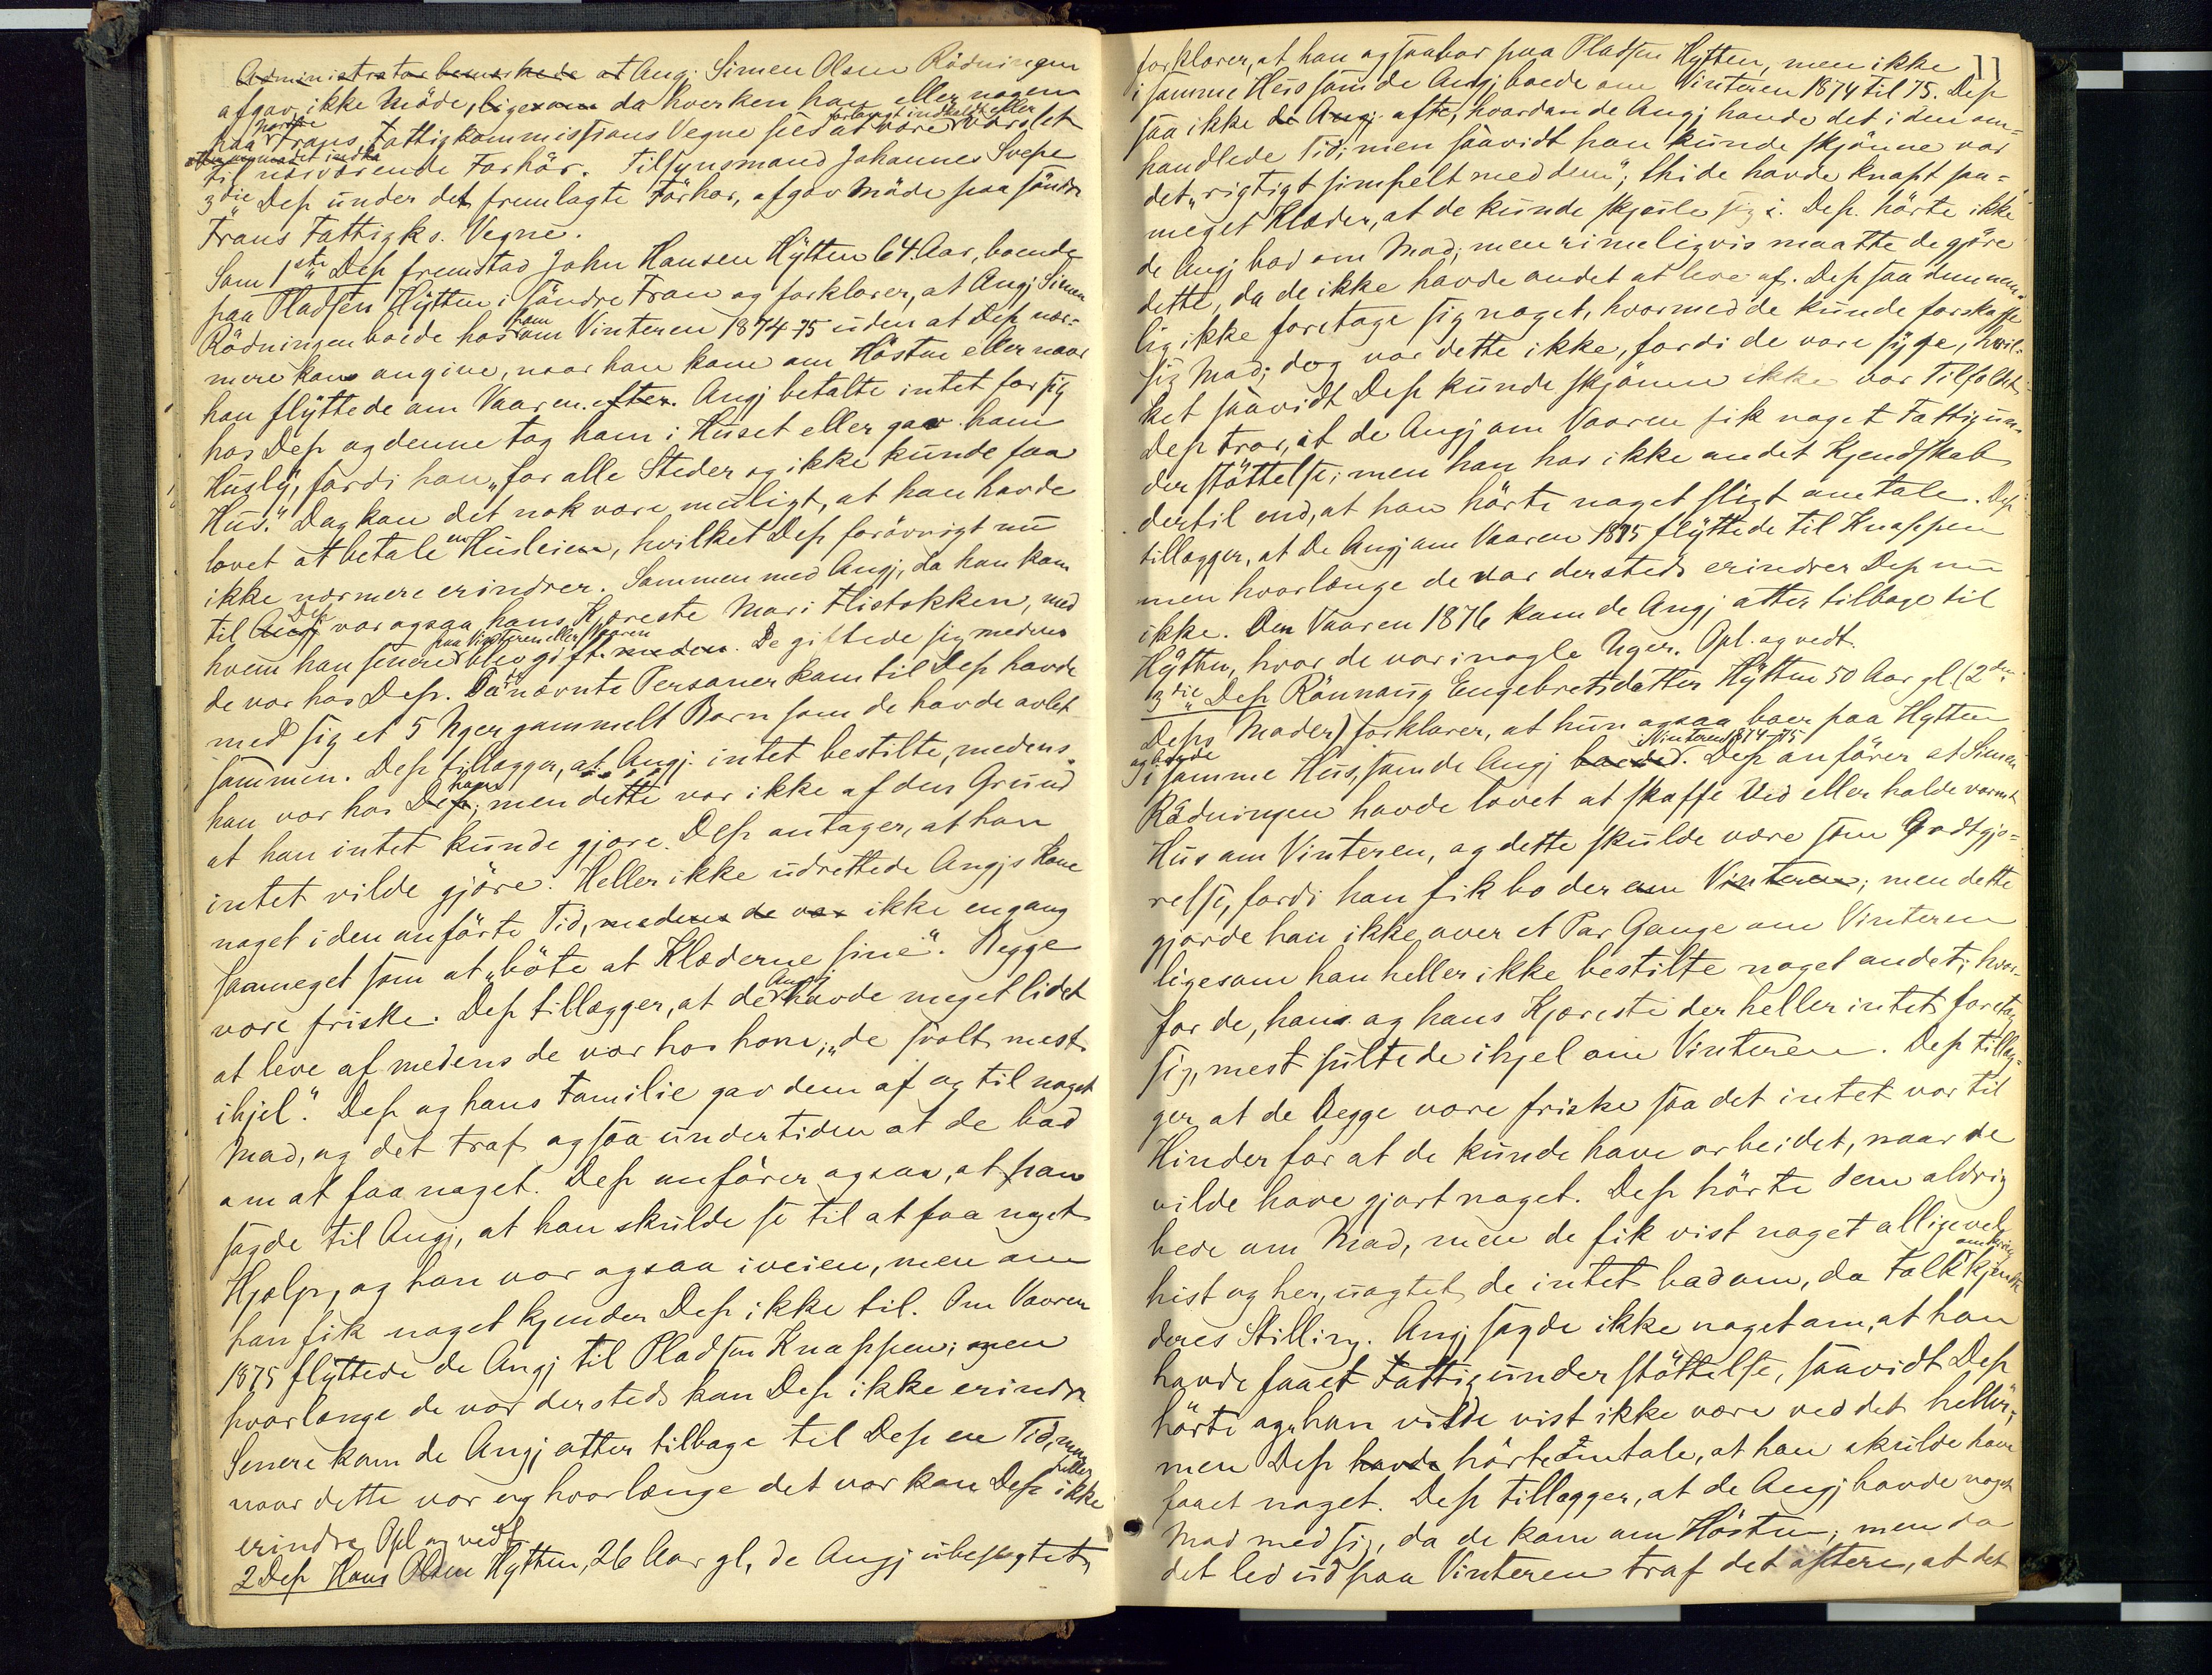 Administrator bemærkede at Angj. Simen Olsen Rödningen
afgav ikke Möde, ligesom da hverken han eller nogen
paa Nordre Trans Fattigkommissions Vegne sees at være forlangt indkaldt eller varslet
til nærværende Forhör. Tilsynsmand Johannes Svepe
3die Dep under det fremlagte Forhör, afgav Möde paa söndre
Trans Fattigks. Vegne.
Som 1ste Dep fremstod John Hansen Hytten 64 Aar, boende
paa Pladsen Hytten i söndre Tran og forklarer, at Angj Simen
Rödningen boede hos ham om Vinteren 1874-75 uden at Dep nær-
mere kan angive, naar han kom om Hösten eller naar
han flyttede om Vaaren efter. Angj betalte intet for sig
hos Dep og denne tog ham i Huset eller gav ham
Husly, fordi han "for alle Steder og ikke kunde faa
Hus." Dog kan det nok være muligt, at han havde
lovet at betale en Husleien, hvilket Dep forövrigt nu
ikke nærmere erindrer. Sammen med Angj, da han kom
til Angj Dep var ogsaa hans Kjæreste Mari Flistokken, med
hvem han senere paa Vinteren eller Vaaren blev gift medens. De giftede sig medens
de var hos Dep. Da nævnte Personer kom til Dep havde
med sig et 5 Uger gammelt Barn som de havde avlet
sammen. Dep tillægger, at Angj. intet bestilte, medens
han var hos Dep ham; men dette var ikke af den Grund
at han intet kunde gjöre. Dep antager, at han
intet vilde gjöre. Heller ikke udrettede Angjs Kone
noget i den anförte Tid, medens de var ikke engang
saameget som at "böte at Klæderne sine". Begge
vare friske. Dep tillægger, at de Angj havde meget lidet
at leve af medens de var hos ham; "de svalt mest
ihjel." Dep og hans Familie gav dem af og til noget
Mad, og det traf ogsaa undertiden at de bad
om at faa noget. Dep anförer ogsaa, at han
sagde til Angj, at han skulde se til at faa noget
Hjælp, og han var ogsaa iveien, men om
han fik noget kjender Dep ikke til. Om Vaaren
1875 flyttede de Angj til Pladsen Knappen; men
hvorlænge de var dersteds kan Dep ikke erindre
Senere kom de Angj atter tilbage til Dep en Tid, men
naar dette var og hvorlænge det var kan Dep heller ikke
erindre Opl og vedt.
2 Dep Hans Olsen Hytten, 26 Aar gl, de Angj ubeslægtet,
11
forklarer, at han ogsaa bor paa Pladsen Hytten, men ikke
i samme Hus som de Angj boede om Vinteren 1874 til 75. Dep
saa ikke de Angj ofte, hvordan de Angj havde det i den om-
handlede Tid; men saavidt han kunde skjönne var
det "rigtigt simpelt med dem", thi de havde knapt saa-
meget Klæder, at de kunde skjule sig i. Dep. hörte ikke
de Angj bad om Mad, men rimeligvis maatte de gjöre
dette, da de ikke havde andet at leve af. Dep saa dem nem-
lig ikke foretage sig noget, hvormed de kunde forskaffe
sig Mad; dog var dette ikke, fordi de vare syge, hvil-
ket saavidt Dep kunde skjönne ikke var Tilfældet.
Dep tror, at de Angj om Vaaren fik noget Fattigun-
derstöttelse; men han har ikke andet Kjendskab
dertil end, at han hörte noget sligt omtale. Dep
tillægger, at de Angj om Vaaren 1875 flyttede til Knappen
men hvorlænge de var dersteds erindrer Dep nu
ikke. Om Vaaren 1876 kom de Angj atter tilbage til
Hytten, hvor de var i nogle Uger. Opl. og vedt.
3die Dep Rönnaug Engebretsdatter Hytten 50 Aar gl. (2den
Deps Moder) forklarer, at hun ogsaa boer paa Hytten
og boede i samme Hus, som de Angj boede Vinteren 1874-75. Dep anförer at Simen
Rödningen havde lovet at skaffe Ved eller holde varmt
Hus om Vinteren, og dette skulde være som Godtgjö-
relse, fordi han fik bo der om Vinteren; men dette
gjorde han ikke over et Par Gange om Vinteren
ligesom han heller ikke bestilte noget andet; hvor-
for de, han og hans Kjæreste der heller intet foretog
sig, mest sultede ihjel om Vinteren. Dep tillæg-
ger at de Begge vare friske saa det intet var til
Hinder for at de kunde have arbeidet, naar de
vilde have gjort noget. Dep hörte dem aldrig
bede om Mad, men de fik vist noget alligevel
hist og her, uagtet de intet bad om, da Folk omkring kjendte
deres Stilling. Angj sagde ikke noget om, at han
havde faaet Fattigunderstöttelse, saavidt Dep
hörte og han vilde vist ikke være ved det heller;
men Dep havde hörte omtale, at han skulde have
faaet noget. Dep tillægger, at de Angj havde noget
Mad med sig, da de kom om Hösten, men da
det led ud paa Vinteren traf det oftere, at det